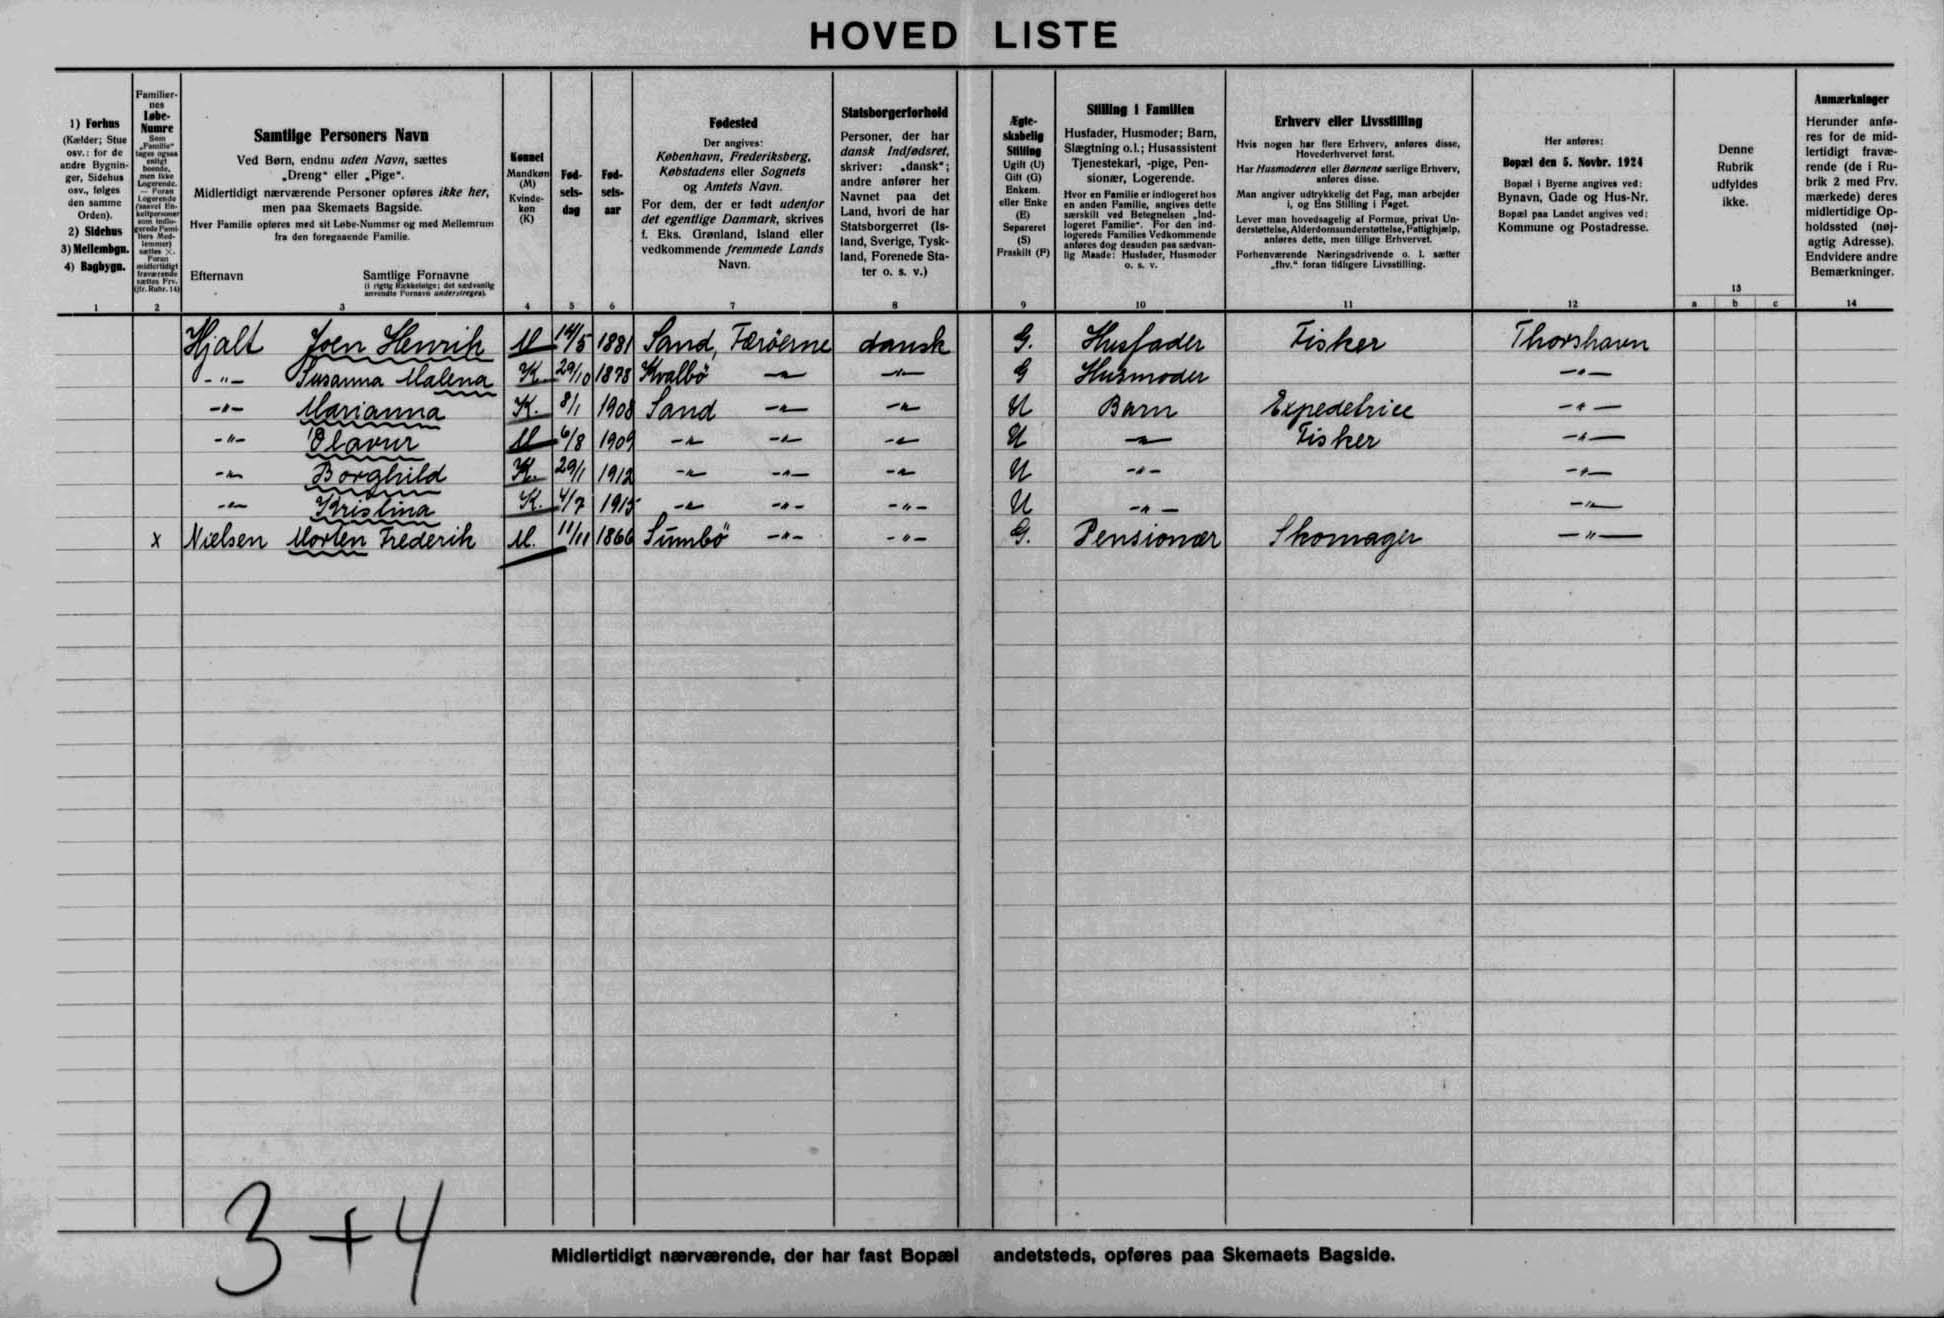 HOVED LISTE
1) Forhus
(Kælder; Stue
osv.: for de
andre Bygnin-
ger, Sidehus
osv., følges
den samme
Orden).
2) Sidehus
3) Mellembgn.
4) Bagbygn.
1
Familier-
nes
Løbe-
Numre
Som
„Familie“
tages ogsaa
enligt
boende,
men ikke
Logerende.
— Foran
Logerende
(saavel En-
keltpersoner
som indlo-
gerede Fami-
liers Med-
lemmer)
sættes ×.
Foran
midlertidigt
fraværende
sættes Frv.
(jfr. Rubr. 14)
2
Samtlige Personers Navn
Ved Børn, endnu uden Navn, sættes
„Dreng“ eller „Pige“.
Midlertidigt nærværende Personer opføres ikke her,
men paa Skemaets Bagside.
Hver Familie opføres med sit Løbe-Nummer og med Mellemrum
fra den foregaaende Familie.
Efternavn Samtlige Fornavne
(i rigtig Rækkefølge; det sædvanlig
anvendte Fornavn understreges).
3
Kønnet
Mandkøn
(M)
Kvinde-
køn
(K)
4
Fød-
sels-
dag
5
Fød-
sels-
aar
6
Fødested
Der angives:
København, Frederiksberg,
Købstadens eller Sognets
og Amtets Navn.
For dem, der er født udenfor
det egentlige Danmark, skrives
f. Eks. Grønland, Island eller
vedkommende fremmede Lands
Navn.
7
Statsborgerforhold
Personer, der har
dansk Indfødsret,
skriver: „dansk“;
andre anfører her
Navnet paa det
Land, hvori de har
Statsborgerret (Is-
land, Sverige, Tysk-
land, Forenede Sta-
ter o. s. v.)
8
Ægte-
skabelig
Stilling
Ugift (U)
Gift (G)
Enkem.
eller Enke
(E)
Separeret
(S)
Fraskilt (F)
9
Stilling i Familien
Husfader, Husmoder; Barn,
Slægtning o.l.; Husassistent
Tjenestekarl, -pige, Pen-
sionær, Logerende.
Hvor en Familie er indlogeret hos
en anden Familie, angives dette
særskilt ved Betegnelsen „Ind-
logeret Familie“. For den ind-
logerede Families Vedkommende
anføres dog desuden paa sædvan-
lig Maade: Husfader, Husmoder
o. s. v.
10
Erhverv eller Livsstilling
Hvis nogen har flere Erhverv, anføres disse,
Hovederhvervet først.
Har Husmoderen eller Børnene særlige Erhverv,
anføres disse.
Man angiver udtrykkelig det Fag, man arbejder
i, og Ens Stilling i Faget.
Lever man hovedsagelig af Formue, privat Un-
derstøttelse, Alderdomsunderstøttelse, Fattighjælp,
anføres dette, men tillige Erhvervet.
Forhenværende Næringsdrivende o. l. sætter
„fhv.“ foran tidligere Livsstilling.
11
Her anføres:
Bopæl den 5. Novbr. 1924
Bopæl i Byerne angives ved:
Bynavn, Gade og Hus-Nr.
Bopæl paa Landet angives ved:
Kommune og Postadresse.
12
Denne
Rubrik
udfyldes
ikke.
13
a b c
Anmærkninger
Herunder anfø-
res for de mid-
lertidigt fravæ-
rende (de i Ru-
brik 2 med Frv.
mærkede) deres
midlertidige Op-
holdssted (nøj-
agtig Adresse).
Endvidere andre
Bemærkninger.
14
Hjalt Joen Henrik M 14/5 1881 Sand, Færöerne dansk G. Husfader Fisker Thorshavn
-"- Susanna Malena K. 29/10 1878 Kvalbö -"- -"- G Husmoder -"-
-"- Marianna K. 8/1 1908 Sand -"- -"- U Barn Expedetrice -"-
-"- Olavur M 6/8 1909 -"- -"- -"- U -"- Fisker -"-
-"- Borghild K. 29/1 1912 -"- -"- -"- U -"- -"-
-"- Kristina K. 4/7 1915 -"- -"- -"- U -"- -"-
x Nielsen Morten Frederik M. 11/11 1866 Sumbö -"- -"- G. Pensionær Skomager -"-
3+4
Midlertidigt nærværende, der har fast Bopæl andetsteds, opføres paa Skemaets Bagside.